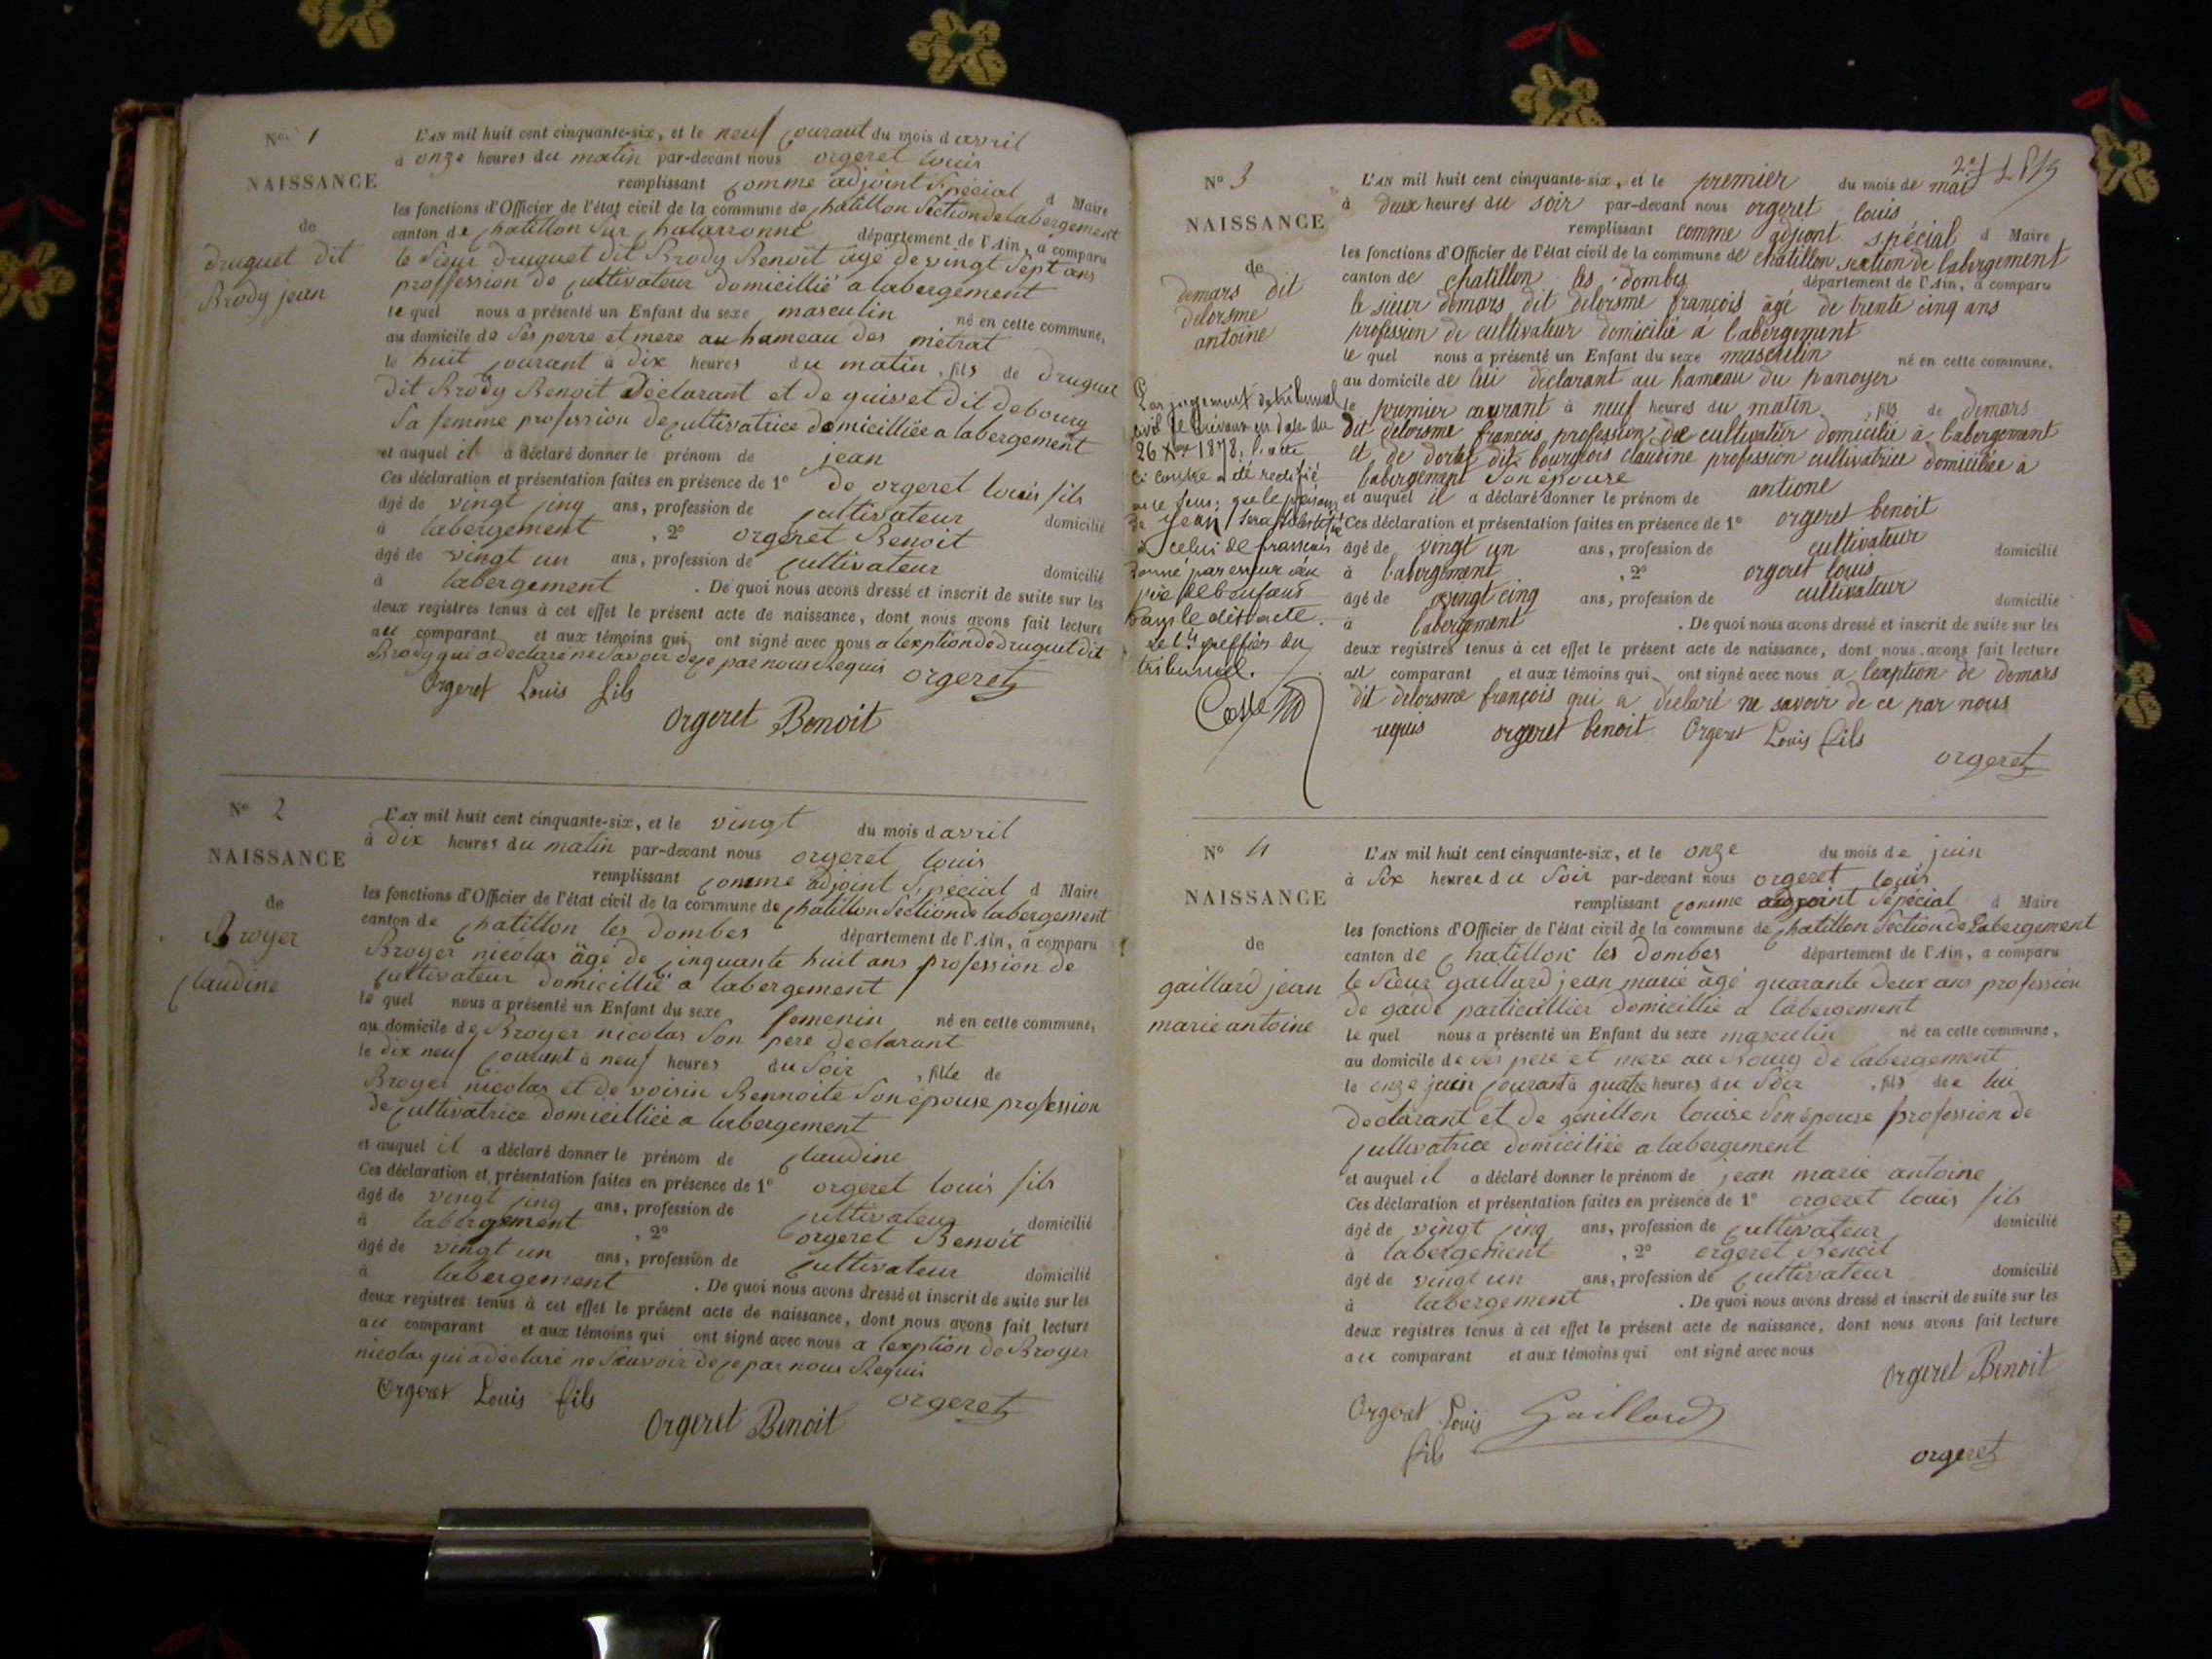 N° 1
NAISSANCE
de
druguet dit
Brody jean
L'AN mil huit cent cinquante-six, et le neuf courant du mois d avril
à onze heures du matin par-devant nous orgeret louis
remplissant comme adjoint Spécial d Maire
les fonctions d'Officier de l'état civil de la commune de chatillon Section de labergement
canton de chatillon sur chalaronne département de l'Ain, a comparu
le Sieur druguet dit Brody Benoît âgé de vingt Sept ans
proffession de cultivateur domicillié a labergement
le quel nous a présenté un Enfant du sexe masculin né en cette commune,
au domicile de Ses perre et mere au hameau des metrat
le huit courant à dix heures du matin, fils de druguet
dit Brody Benoit Déclarant et de guivet dit debourg
Sa femme profession de cultivatrice domicilliée a labergement
et auquel il a déclaré donner le prénom de jean
Ces déclaration et présentation faites en présence de 1° de orgeret louis fils
âgé de vingt cinq ans, profession de cultivateur domicilié
à labergement, 2° orgeret Benoit
âgé de vingt un ans, profession de cultivateur domicilié
à labergement. De quoi nous avons dressé et inscrit de suite sur les
deux registres tenus à cet effet le présent acte de naissance, dont nous avons fait lecture
au comparant et aux témoins qui ont signé avec nous a lexption de druguet dit
Brody qui a declarré ne Savoir de ce par nous Requis
Orgeret Louis fils orgeret
Orgeret Benoit
N° 2
NAISSANCE
de
Broyer
claudine
L'AN mil huit cent cinquante-six, et le vingt du mois d avril
à dix heures du matin par-devant nous orgeret louis
remplissant comme adjoint Spécial d Maire
les fonctions d'Officier de l'état civil de la commune de chatillon Section de labergement
canton de chatillon les dombes département de l'Ain, a comparu
Broyer nicolas âgé de cinquante huit ans profession de
cultivateur domicillié a labergement
le quel nous a présenté un Enfant du sexe femenin né en cette commune,
au domicile de Broyer nicolas Son pere declarant
le dix neuf courant à neuf heures du Soir, fille de
Broyer nicolas et de voisin Bennoite Son épouse profession
de cultivatrice domicilliée a labergement
et auquel il a déclaré donner le prénom de claudine
Ces déclaration et présentation faites en présence de 1° orgeret louis fils
âgé de vingt cinq ans, profession de cultivateur domicilié
à labergement, 2° orgeret Benoit
âgé de vingt un ans, profession de cultivateur domicilié
à labergement. De quoi nous avons dressé et inscrit de suite sur les
deux registres tenus à cet effet le présent acte de naissance, dont nous avons fait lecture
au comparant et aux témoins qui ont signé avec nous a lexption de Broyer
nicolas qui a declaré ne Sauvoir de ce par nous Requis
Orgeret Louis fils orgeret
Orgeret Benoit
N° 3
NAISSANCE
de
demars dit
delorsme
antoine
Par jugement du tribunal
civil de Trévoux en date du
26 Xbre 1878, l'acte
ci contre a été rectifié
en ce sens; que le prénom
de Jean sera substitué
à celui de françois
donné par erreur au
père de l'enfant
dans le dit acte.
greffier du
tribunal.
L'AN mil huit cent cinquante-six, et le premier du mois de mai
à deux heures du soir par-devant nous orgeret louis
remplissant comme adjiont spécial d Maire
les fonctions d'Officier de l'état civil de la commune de chatillon section de labergement
canton de chatillon les dombes département de l'Ain, a comparu
le sieur demars dit delorsme françois âgé de trente cinq ans
profession de cultivateur domicilié a labergement
le quel nous a présenté un Enfant du sexe masculin né en cette commune,
au domicile de lui déclarant au hameau du panoyer
le premier courant à neuf heures du matin, fils de demars
dit delorsme françois profession de cultivateur domicilié à labergement
et de dit bourgeois claudine profession cultivatrice domiciliée à
labergement Son épouse
et auquel il a déclaré donner le prénom de antione
Ces déclaration et présentation faites en présence de 1° orgeret benoit
âgé de vingt un ans, profession de cultivateur domicilié
à labergement, 2° orgeret louis
âgé de vingt cinq ans, profession de cultivateur domicilié
à labergement. De quoi nous avons dressé et inscrit de suite sur les
deux registres tenus à cet effet le présent acte de naissance, dont nous avons fait lecture
au comparant et aux témoins qui ont signé avec nous a lexption de demars
dit delorsme françois qui a déclaré ne savoir de ce par nous
requis orgeret benoit Orgeret Louis fils
orgeret
N° 4
NAISSANCE
de
gaillard jean
marie antoine
L'AN mil huit cent cinquante-six, et le onze du mois de juin
à Six heures du Soir par-devant nous orgeret louis
remplissant comme adjoint Sépécial d Maire
les fonctions d'Officier de l'état civil de la commune de chatillon Section de Labergement
canton de chatillon les dombes département de l'Ain, a comparu
le Sieur gaillard jean marie âgé quarante deux ans profession
de garde particullier domicillié a labergement
le quel nous a présenté un Enfant du sexe masculin né en cette commune,
au domicile de Ses pere et mere au Bourg de labergement
le onze juin courant à quatre heures du Soir, fils de lui
declarant et de genillon louise Son épouse profession de
cultivatrice domiciliée a labergement
et auquel il a déclaré donner le prénom de jean marie antoine
Ces déclaration et présentation faites en présence de 1° orgeret louis fils
âgé de vingt cinq ans, profession de cultivateur domicilié
à labergement, 2° orgeret Benoit
âgé de vingt un ans, profession de cultivateur domicilié
à labergement. De quoi nous avons dressé et inscrit de suite sur les
deux registres tenus à cet effet le présent acte de naissance, dont nous avons fait lecture
au comparant et aux témoins qui ont signé avec nous
Orgeret Benoit
Orgeret Louis Gaillard
fils orgeret